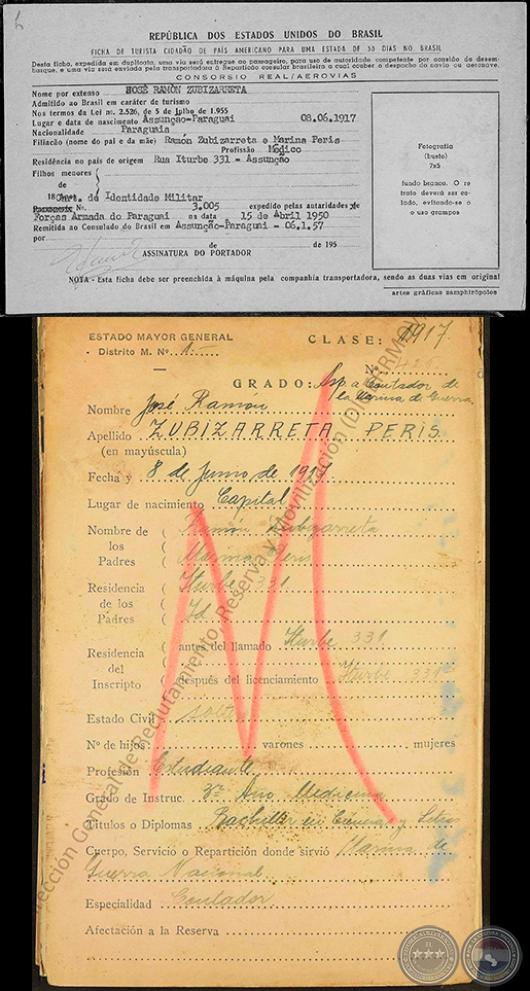 REPÚBLICA DOS ESTADOS UNIDOS DO BRASIL
FICHA DE TURISTA CIDADÃO DE PAÍS AMERICANO PARA UMA ESTADA DE 30 DIAS NO BRASIL
Desta ficha, expedida em duplicata, uma via será entregue ao passageiro, para uso da autoridade competente por ocasião do desem-
barque, e uma via será enviada pela transportadora à Repartição consular brasileira a qual couber o despacho do navio ou aeronave.
CONSORSIO REAL/AEROVIAS
Nome por extenso JOSÉ RAMÓN ZUBIZARRETA
Admitido ao Brasil em caráter de turismo
Nos termos da Lei nº. 2.526, de 5 de Julho de 1.955
Lugar e data de nascimento Assunção-Paraguai 08.06.1917
Nacionalidade Paraguaia
Filiacão (nome do pai e da mãe) Ramón Zubizarreta e Marina Peris
Profissão Médico
Residência no país de origem Rua Iturbe 331 - Assunção
Filhos menores
de
18 Cart. de Identidade Militar
No. 3.005 expedido pelas autoridades de
Forças Armada do Paraguai na data 15 de Abril 1950
Remitida ao Consulado do Brasil em Assunção-Paraguai - 06.1.57
por de de 195
ASSINATURA DO PORTADOR
Fotografia
(busto)
7x5
fundo branco. O re
trato deverá ser co-
lado, evitando-se o
o uso grampos
NOTA - Esta ficha deber ser preenchida à máquina pela companhia transportadora, sendo as duas vias em original
artes gráficas zamphirópolos
ESTADO MAYOR GENERAL
- Distrito M. Nº 1
CLASE: 1917
Nº
GRADO: Asp. a Contador de
la Marina de Guerra
Nombre José Ramón
Apellido ZUBIZARRETA PERIS
(en mayúscula)
Fecha y 8 de Junio de 1917
Lugar de nacimiento Capital
Nombre de los Padres ( Ramón Zubizarreta
( Marina Peris
Residencia de los Padres ( Iturbe 331
( Id
Residencia del Inscripto ( antes del llamado Iturbe 331
( después del licenciamiento Iturbe 331
Estado Civil solt
Nº de hijos: varones mujeres
Profesión Estudiante
Grado de Instruc. 3er Año Medicina
Títulos o Diplomas Bachiller en Ciencias y Letras
Cuerpo, Servicio o Repartición donde sirvió Marina de
Guerra Nacional
Especialidad Contador
Afectación a la Reserva
Dirección General de Reclutamiento, Reserva y Movilización